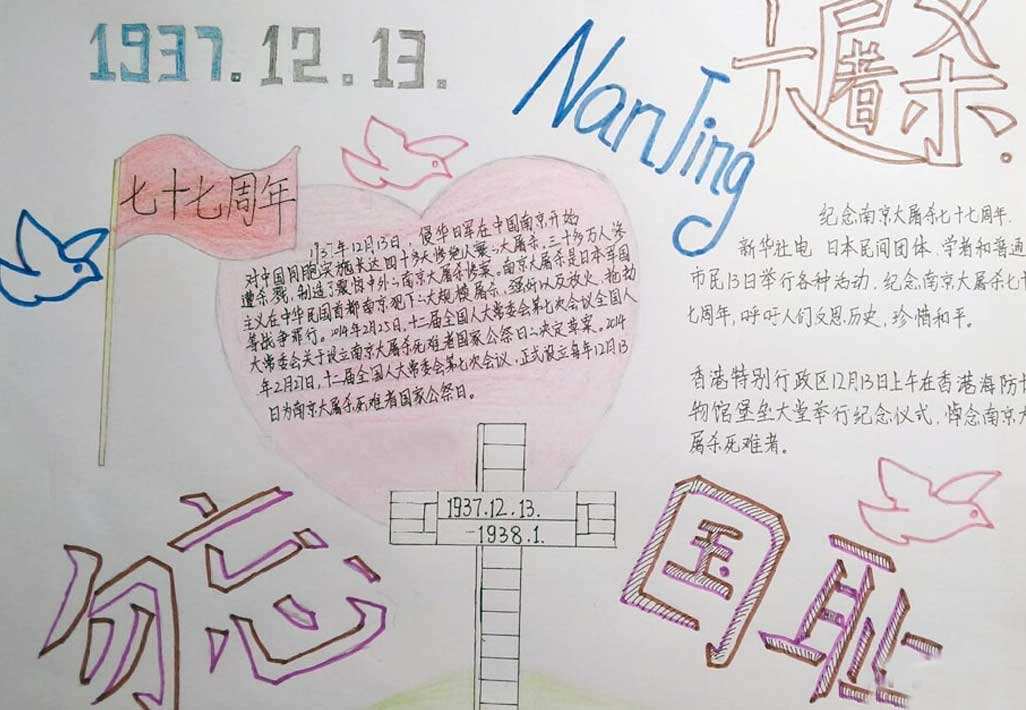 1937.12.13.
NanJing
大屠杀.
七十七周年
1937年12月13日，侵华日军在中国南京开始
对中国同胞实施长达四十多天惨绝人寰的大屠杀，三十多万人惨
遭杀戮，制造了震惊中外的南京大屠杀惨案。南京大屠杀是日本军国
主义在中华民国首都南京犯下的大规模屠杀、强奸以及放火、抢劫
等战争罪行。2014年2月25日，十二届全国人大常委会第七次会议全国人
大常委会关于设立南京大屠杀死难者国家公祭日的决定草案。2014
年2月27日，十二届全国人大常委会第七次会议，正式设立每年12月13
日为南京大屠杀死难者国家公祭日。
纪念南京大屠杀七十七周年.
新华社电 日本民间团体、学者和普通
市民13日举行各种活动，纪念南京大屠杀七十
七周年，呼吁人们反思历史，珍惜和平。
香港特别行政区12月13日上午在香港海防
物馆堡垒大堂举行纪念仪式，悼念南京大
屠杀死难者。
1937.12.13.
-1938.1.
勿忘
国耻